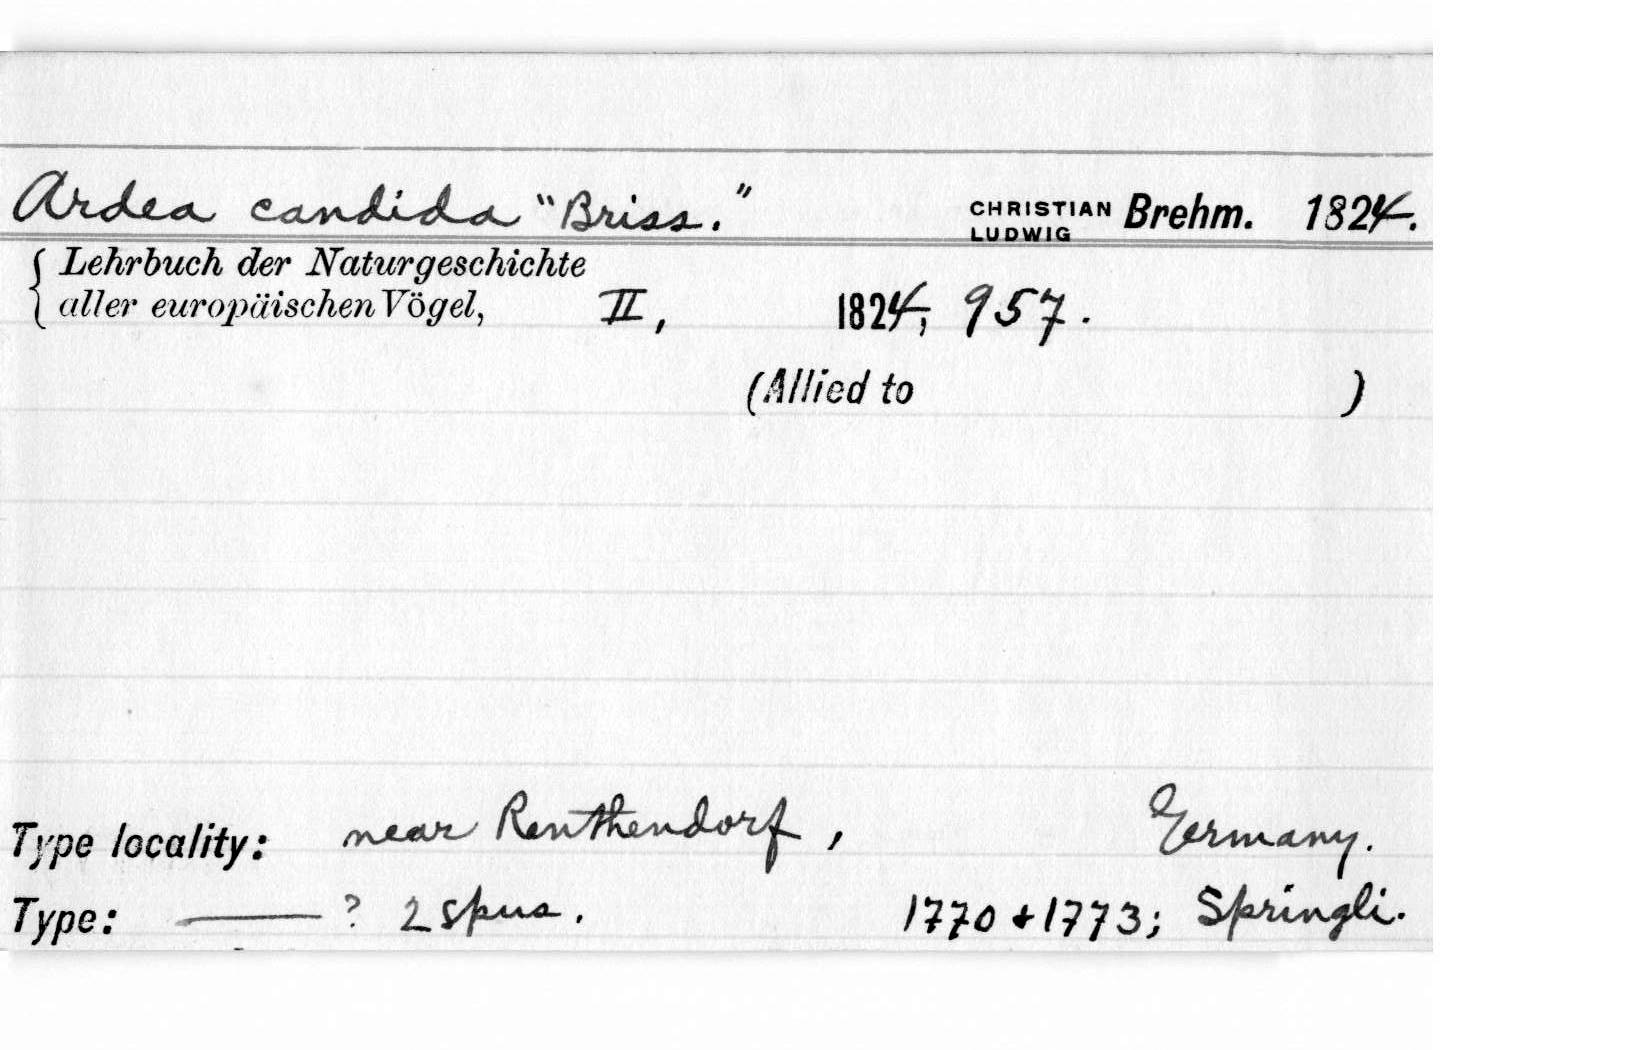 Ardea candida "Briss." CHRISTIAN LUDWIG Brehm. 1824.
Lehrbuch der Naturgeschichte
aller europäischen Vögel, II, 1824, 957.
(Allied to )
Type locality: near Renthendorf, Germany.
Type: —— ? 2 spns. 1770 + 1773; Springli.